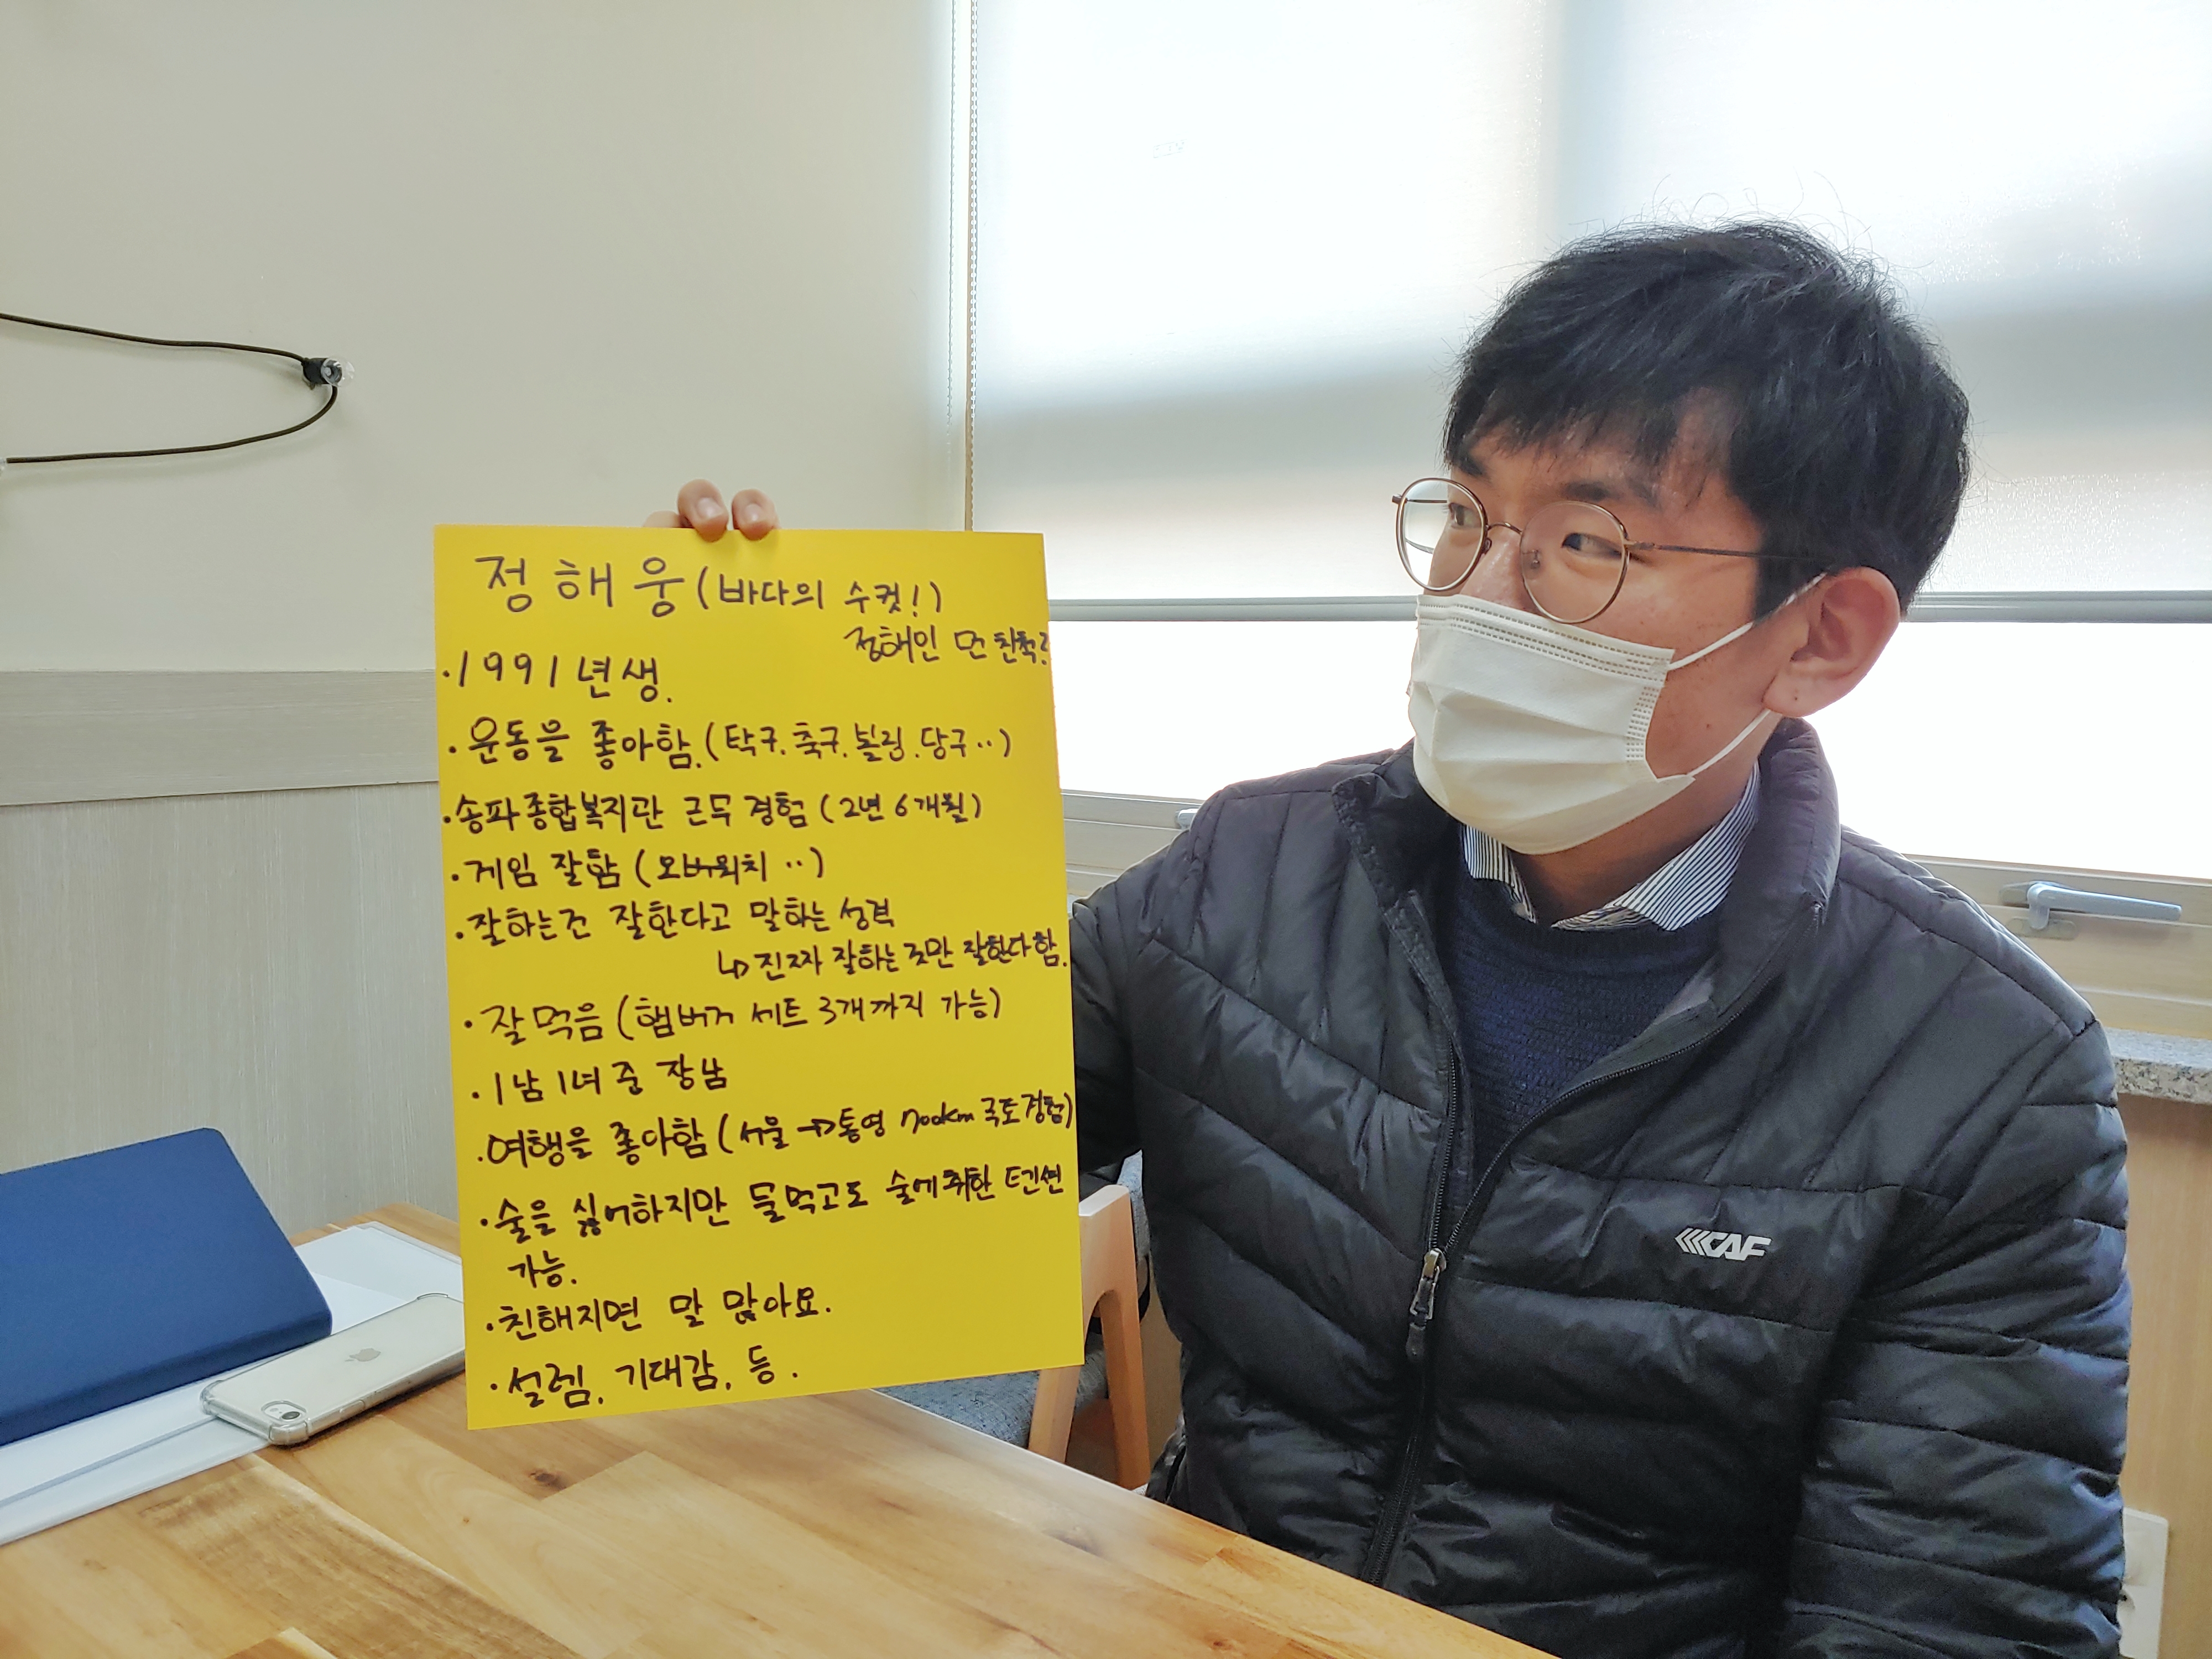 정해웅 (바다의 수컷!)
정해인 먼 친척?
·1991년생.
·운동을 좋아함. (탁구.축구.볼링.당구··)
·송파종합복지관 근무 경험 (2년 6개월)
·게임 잘함 (오버워치 ··)
·잘하는건 잘한다고 말하는 성격
↳진짜 잘하는 것만 잘한다함.
·잘먹음 (햄버거 세트 3개까지 가능)
·1남1녀 중 장남
·여행을 좋아함 (서울→통영 700km 국토경험)
·술을 싫어하지만 물먹고도 술에취한 텐션
가능.
·친해지면 말 많아요.
·설렘, 기대감, 등.
CAF